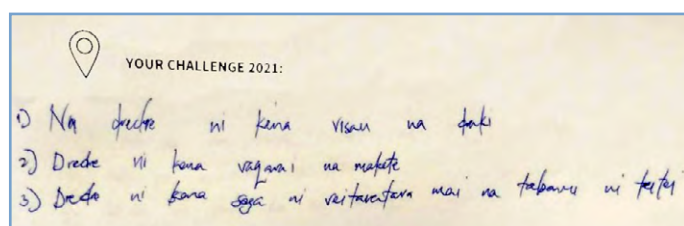 YOUR CHALLENGE 2021:
1) Na dredre ni kena visau na draki
2) Dredre ni kena vaqarai na makete
3) Dredre ni kena saga ni veitaratara mai na tabana ni teitei